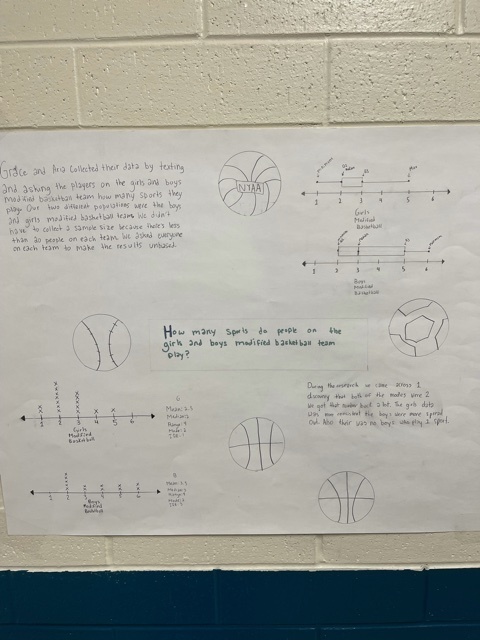 Grace and Aria collected their data by texting
and asking the players on the girls and boys
modified basketball team how many sports they
play. Our two different populations were the boys
and girls modified basketball team. We didn't
have to collect a sample size because there's less
than 20 people on each team. We asked everyone
on each team to make the results unbiased.
NYAA
1 2 3 4 5 6
Girls
Modified
Basketball
1 2 3 4 5 6
Boys
Modified
Basketball
How many sports do people on the
girls and boys modified basketball team
play?
During the research we came across 1
that both of the modes were 2
We got that number back a lot. The girls dots
was more consistent the boys were more spread
out. Also their was no boys who play 1 sport.
1 2 3 4 5 6
Girls
Modified
Basketball
G
Mean: 2.5
Median: 2
Range: 4
Mode: 2
1 2 3 4 5 6
Boys
Modified
Basketball
B
Mean: 3.5
Range: 4